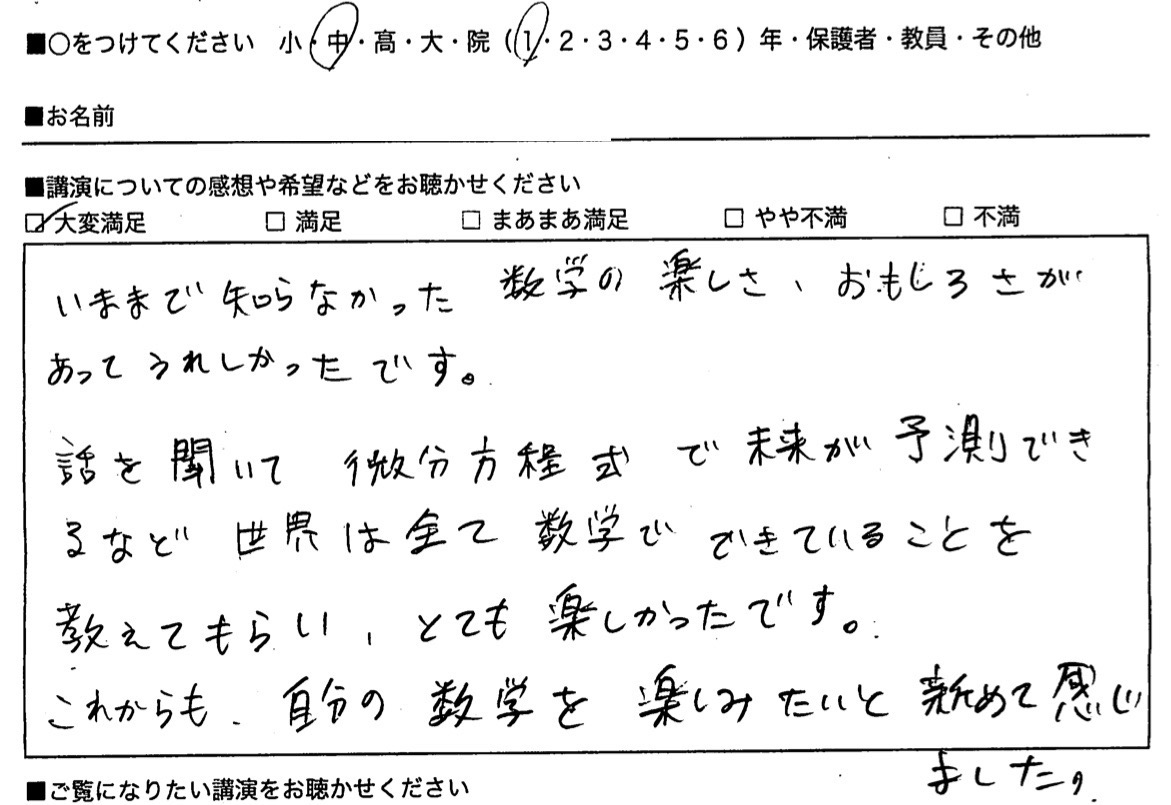 ■○をつけてください 小・中・高・大・院(1・2・3・4・5・6)年・保護者・教員・その他
■お名前
■講演についての感想や希望などをお聴かせください
☑大変満足 □ 満足 □ まあまあ満足 □ やや不満 □ 不満
いままで知らなかった 数学の楽しさ、おもしろさが
あってうれしかったです。
話を聞いて 微分方程式で未来が予測でき
るなど世界は全て数学でできていることを
教えてもらい、とても楽しかったです。
これからも、自分の数学を楽しみたいと新めて感じ
ました。
■ご覧になりたい講演をお聴かせください